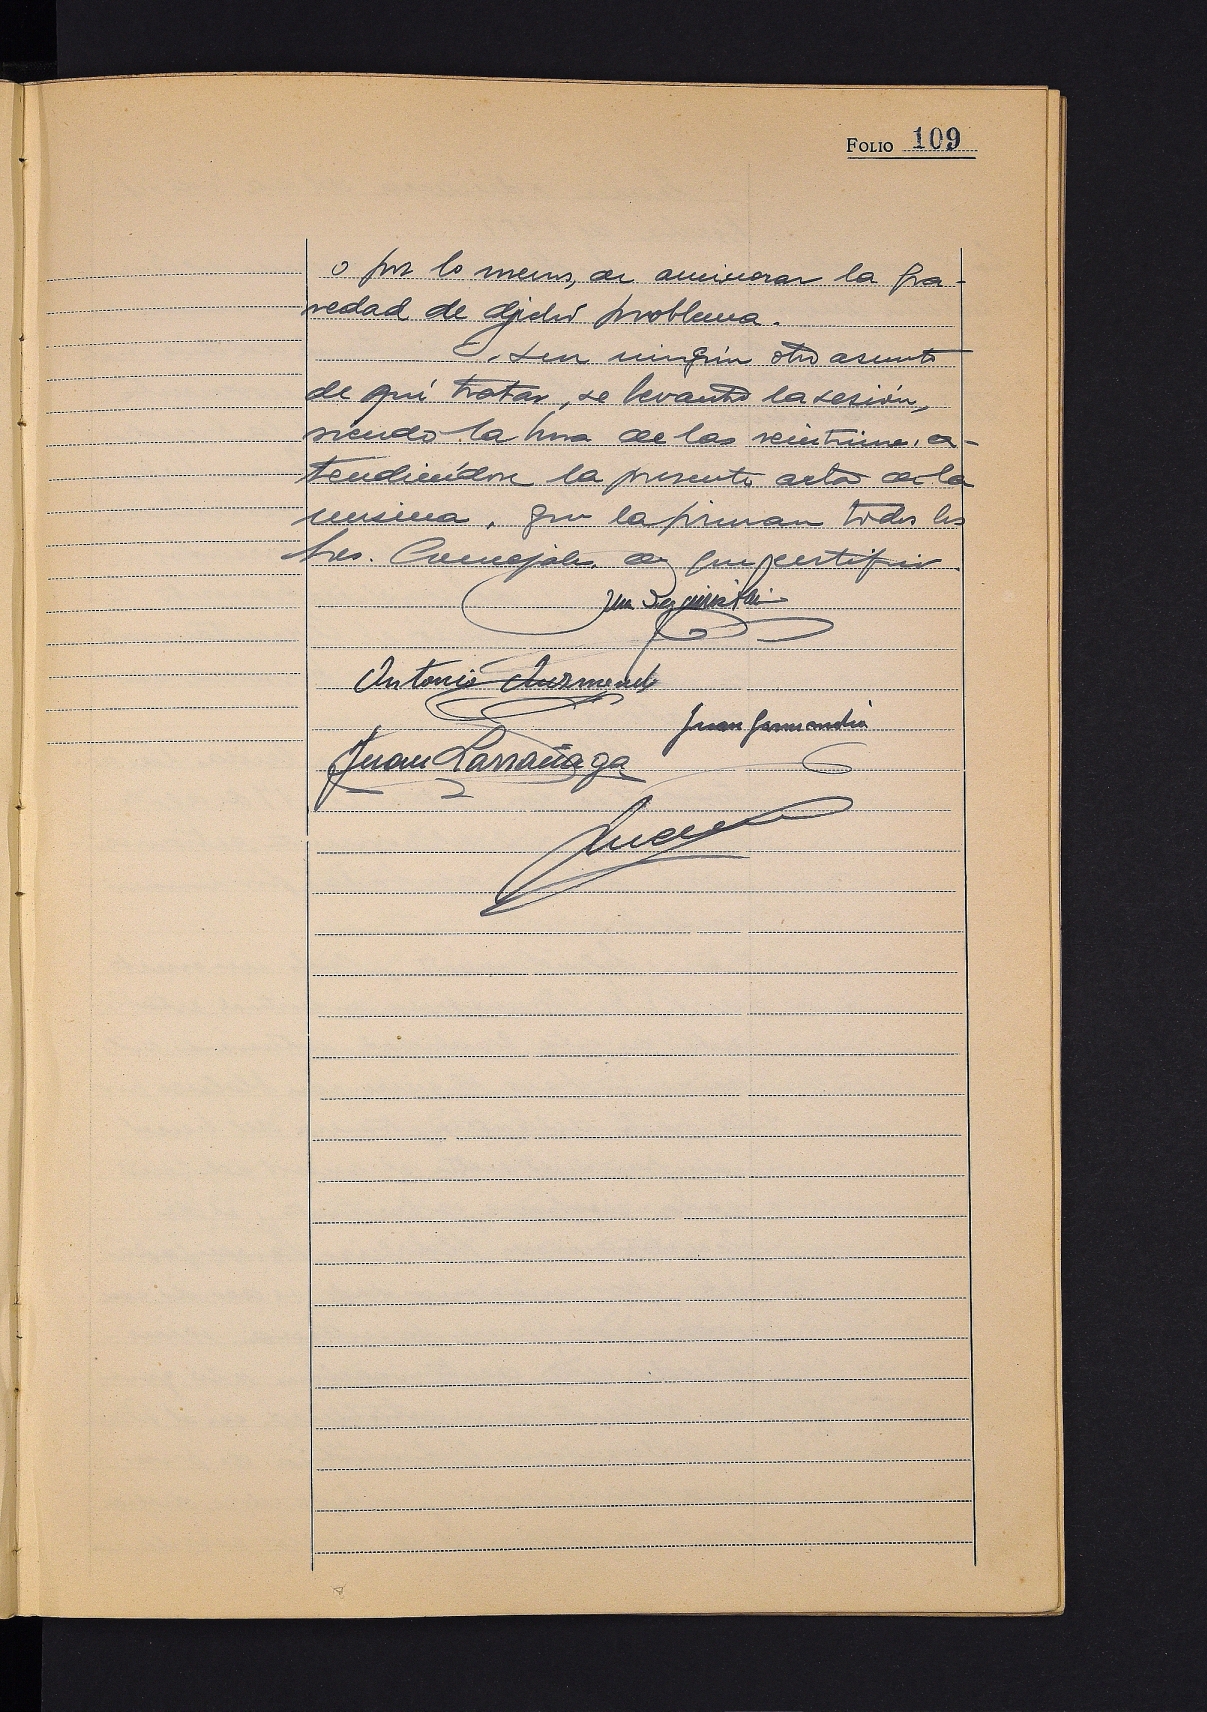 FOLIO 109
o por lo menos, de aminorar la gra-
vedad de dicho problema.
Y, sin ningún otro asunto
de qué tratar, se levantó la sesión,
siendo la hora de las veintiuna, ex-
tendiéndose la presente acta de la
misma, que la firman todos los
Sres. Concejales, de que certifico.
Antonio
Juan Garmendia
Juan Larrañaga